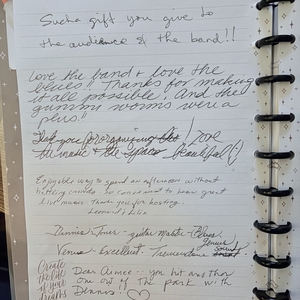 Such a gift you give to
the audience & the band!!
Love the band & love the
blues!! Thanks for making
it all possible! And the
gummy worms were a
plus!!
Thank you for organizing
the music & the space Beautiful
Enjoyable way to spend an afternoon without
to hear great
live music. Thank you for hosting
Leonard &
Dennis Jones - guitar Master - Blues
Genius
Venue - Excellent Tremendous Sound
Create
the life
of your
Dreams
Dear Aimee - you hit another
one out of the park with
Dennis!